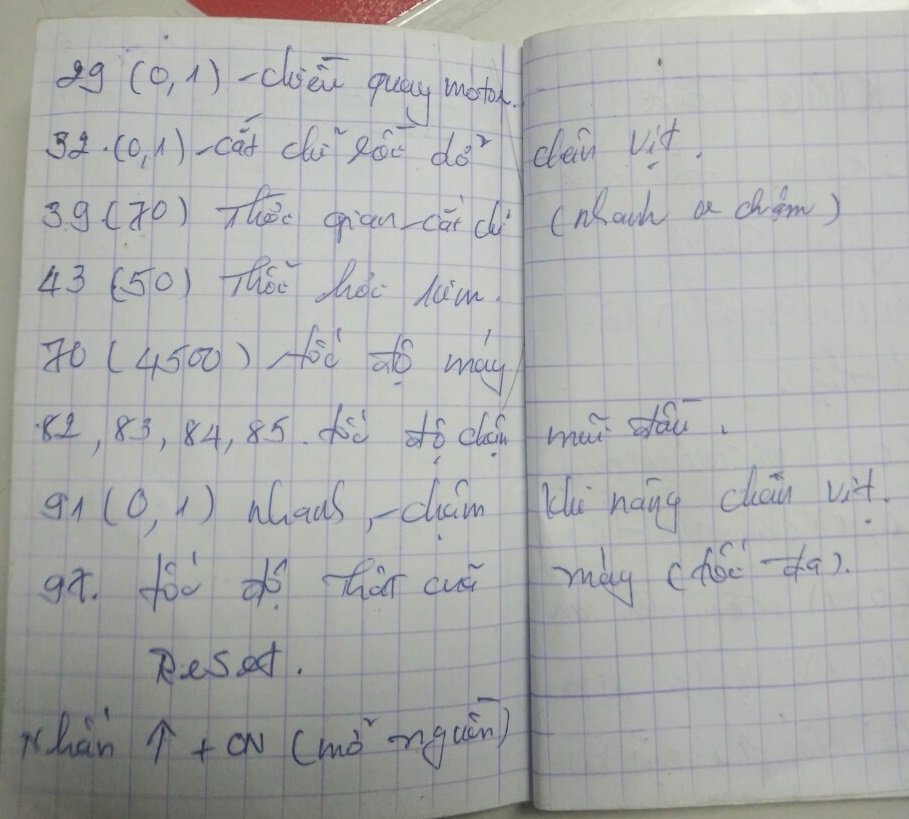 29 (0,1) - chiều quay motor.
32. (0,1) - cắt chỉ rồi dở chân vịt.
39 (70) Thời gian cắt chỉ (nhanh or chậm)
43 (50) Thổi hơi kim.
70 (4500) tốc độ máy
82, 83, 84, 85. tốc độ chậm mũi đầu.
91 (0,1) nhanh, - chậm khi nâng chân vịt.
97. tốc độ thật củă máy (tốc đa).
Reset.
Nhấn ↑ + ON (mở nguồn)